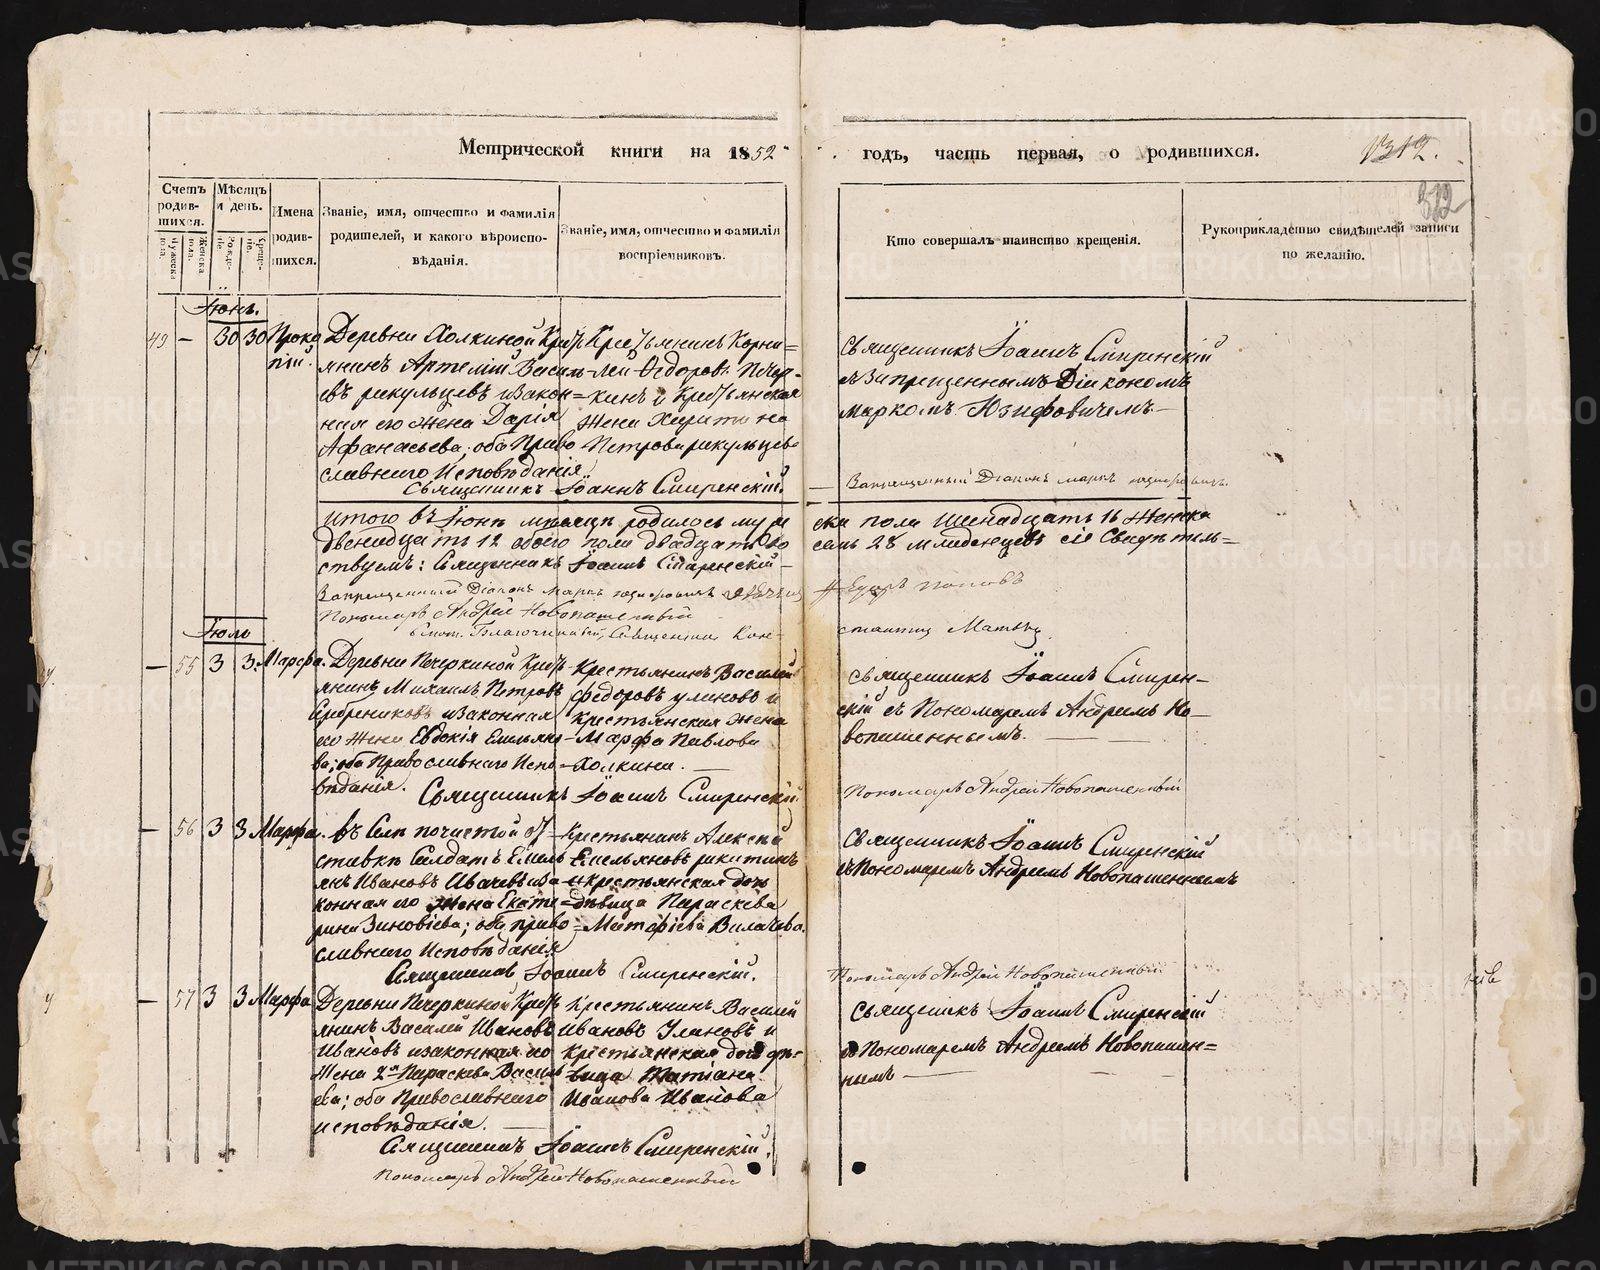 Метрической книги на 1852
годъ, часть первая, о родившихся.
1312.
312
Счетъ родив-шихся.
Мужеска пола.
Женска пола.
Мѣсяцъ и день.
Рожде-нія.
Креще-нія.
Имена родив-шихся.
Званіе, имя, отчество и фамилія
родителей, и какого вѣроиспо-
вѣданія.
Званіе, имя, отчество и фамилія
воспріемниковъ.
Кто совершалъ таинство крещенія.
Рукоприкладство свидѣтелей записи
по желанію.
Іюнь.
49 — 30 30 Проко
пій.
Деревни Холкиной Кресть
янинъ Артемій Василь
евъ рикульцевъ изакон=
ная его жена Дарія
Афанасьева, оба Право
славнаго Исповѣданія
Крестьянинъ Корни=
лей Ѳедоровъ Печер-
кинъ и Крестьянская
жена Харитина
Петрова рикульцева
Священникъ Іоаннъ Смиренскій.
Священникъ Іоаннъ Смиренскій
съ Запрещеннымъ Діакономъ
Маркомъ Юзифовичемъ.—
Запрещенный Діаконъ Маркъ
Итого въ Іюнѣ мѣсяцѣ родилось муже
ска пола шенадцать 16 женска
двенадцать 12 обоего пола двадцать во
семь 28 младенцевъ сіе Свидѣтель=
ствуемъ: Священникъ Іоаннъ Смиренскій
Запрещенный Діаконъ Маркъ
Пономарь Андрей Новопашенный
Священникъ Кон-
стантинъ
Іюль
— 55 3 3. Марѳа.
Деревни Печеркиной Кресть
янинъ Михаилъ Петровъ
Серебрениковъ изаконная
его жена Евдокія Емельяно
ва; оба Православнаго Испо=
вѣданія.
Крестьянинъ Василей
Федоровъ улановъ и
крестьянская жена
Марфа Павлова
Холкина. —
Священникъ Іоаннъ Смиренскій.
Священникъ Іоаннъ Смирен—
скій съ Пономаремъ Андреемъ Но—
вопашеннымъ. —
Пономарь Андрей Новопашенный
— 56 3 3 Марфа.
въ Селѣ почистой от
ставкѣ Салдатъ Емель
янъ Ивановъ изa
конная его жена Екате
рина Зиновіева; оба право
славнаго Исповѣданія
Крестьянинъ Алексѣй
Емельяновъ рикитинъ
и крестьянская дочь
дѣвица Параскева
Матфіева
Священникъ Іоаннъ Смиренскій.
Священникъ Іоаннъ Смиренскій
съ Пономаремъ Андреемъ Новопашеннымъ
Пономарь Андрей Новопашенный
— 57 3 3 Марфа
Деревни Печеркиной Кресть
янинъ Василей Ивановъ
Ивановъ изаконная его
Жена 2я Параскева Василь
ева; оба Православнаго
исповѣданія. —
Крестьянинъ Василей
Ивановъ Улановъ и
Крестьянская дочь дѣ=
вица Татіана
Иванова Иванова
Священникъ Іоаннъ Смиренскій.
Пономарь Андрей Новопашенный
Священникъ Іоаннъ Смиренскій
съ Пономаремъ Андреемъ Новопашен=
нымъ —
METRIKI.GASO-URAL.RU